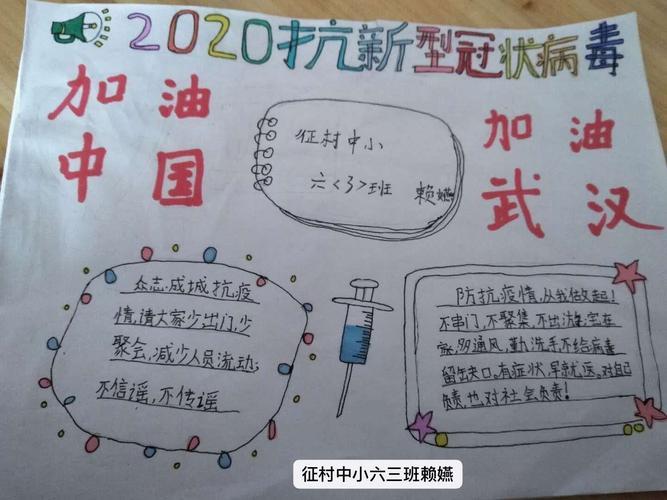 2020抗新型冠状病毒
加油
中国
征村中小
六<3>班 赖嬿
加油
武汉
众志成城抗疫
情,请大家少出门,少
聚会,减少人员流动;
不信谣,不传谣
防抗疫情,从我做起!
不串门,不聚集,不出游,宅在
家,多通风,勤洗手不给病毒
留缺口。有症状,早就医。对自己
负责,也对社会负责!
征村中小六三班赖嬿